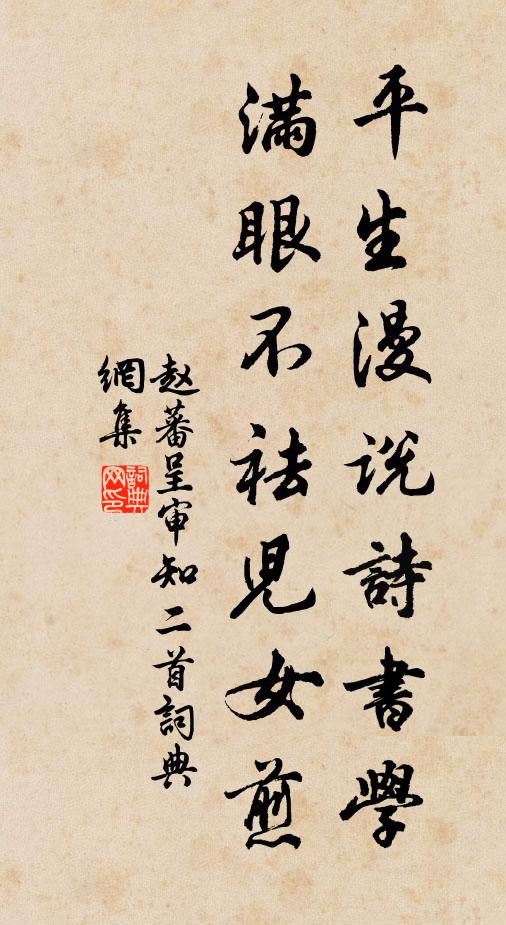 平生漫说詩書學
滿眼不祛児女煎
赵蕃呈审知二首詞典
網集
詞典網印